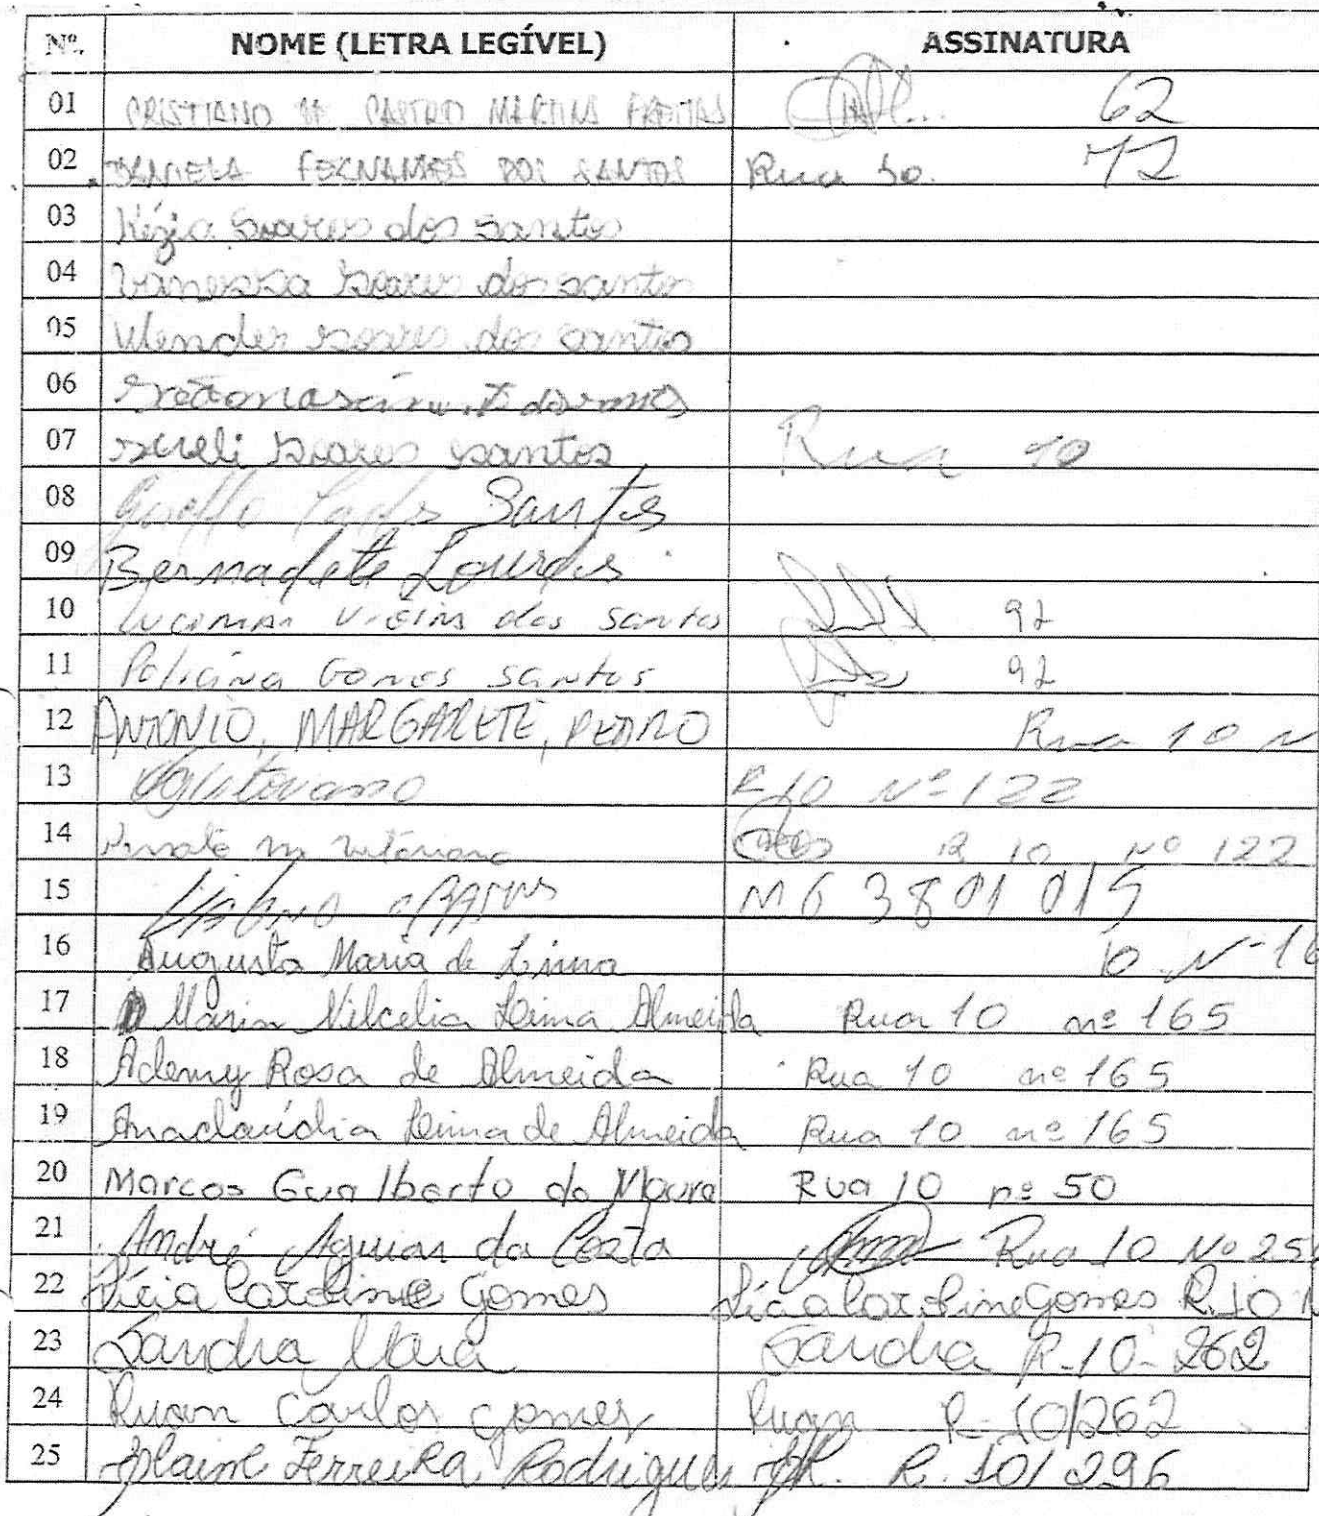 Nº. NOME (LETRA LEGÍVEL) ASSINATURA
01 CRISTIANO CASTRO MARTINS FREITAS 62
02 DANIELA FERNANDES DOS SANTOS Rua 10. 72
03 Kézia Soares dos Santos
04 Vanessa Soares dos santos
05 Wender soares dos santos
06
07 sueli soares santos Rua 10
08 Santos
09 Bernadete Lourdes
10 Lucimar Vieira dos Santos 92
11 Policina Gomes Santos 92
12 ANTONIO, MARGARETE, PEDRO Rua 10 N
13 R 10 Nº 122
14 Renato M R 10 Nº 122
15 MG 3801015
16 Augusta Maria de Lima 10 N-16
17 Maria Nilcelia Lima Almeida Rua 10 nº 165
18 Ademy Rosa de Almeida Rua 10 nº 165
19 Anaclaúdia Lima de Almeida Rua 10 nº 165
20 Marcos Gualberto de Moura Rua 10 nº 50
21 André Aguiar da Costa Rua 10 Nº 25
22 Lícia Caroline Gomes Lícia Caroline Gomes R. 10 N
23 Sandra Mara Sandra R-10- 262
24 Ruan Carlos gomes Ruan R-10/262
25 Elaine Ferreira Rodrigues R. 10/296